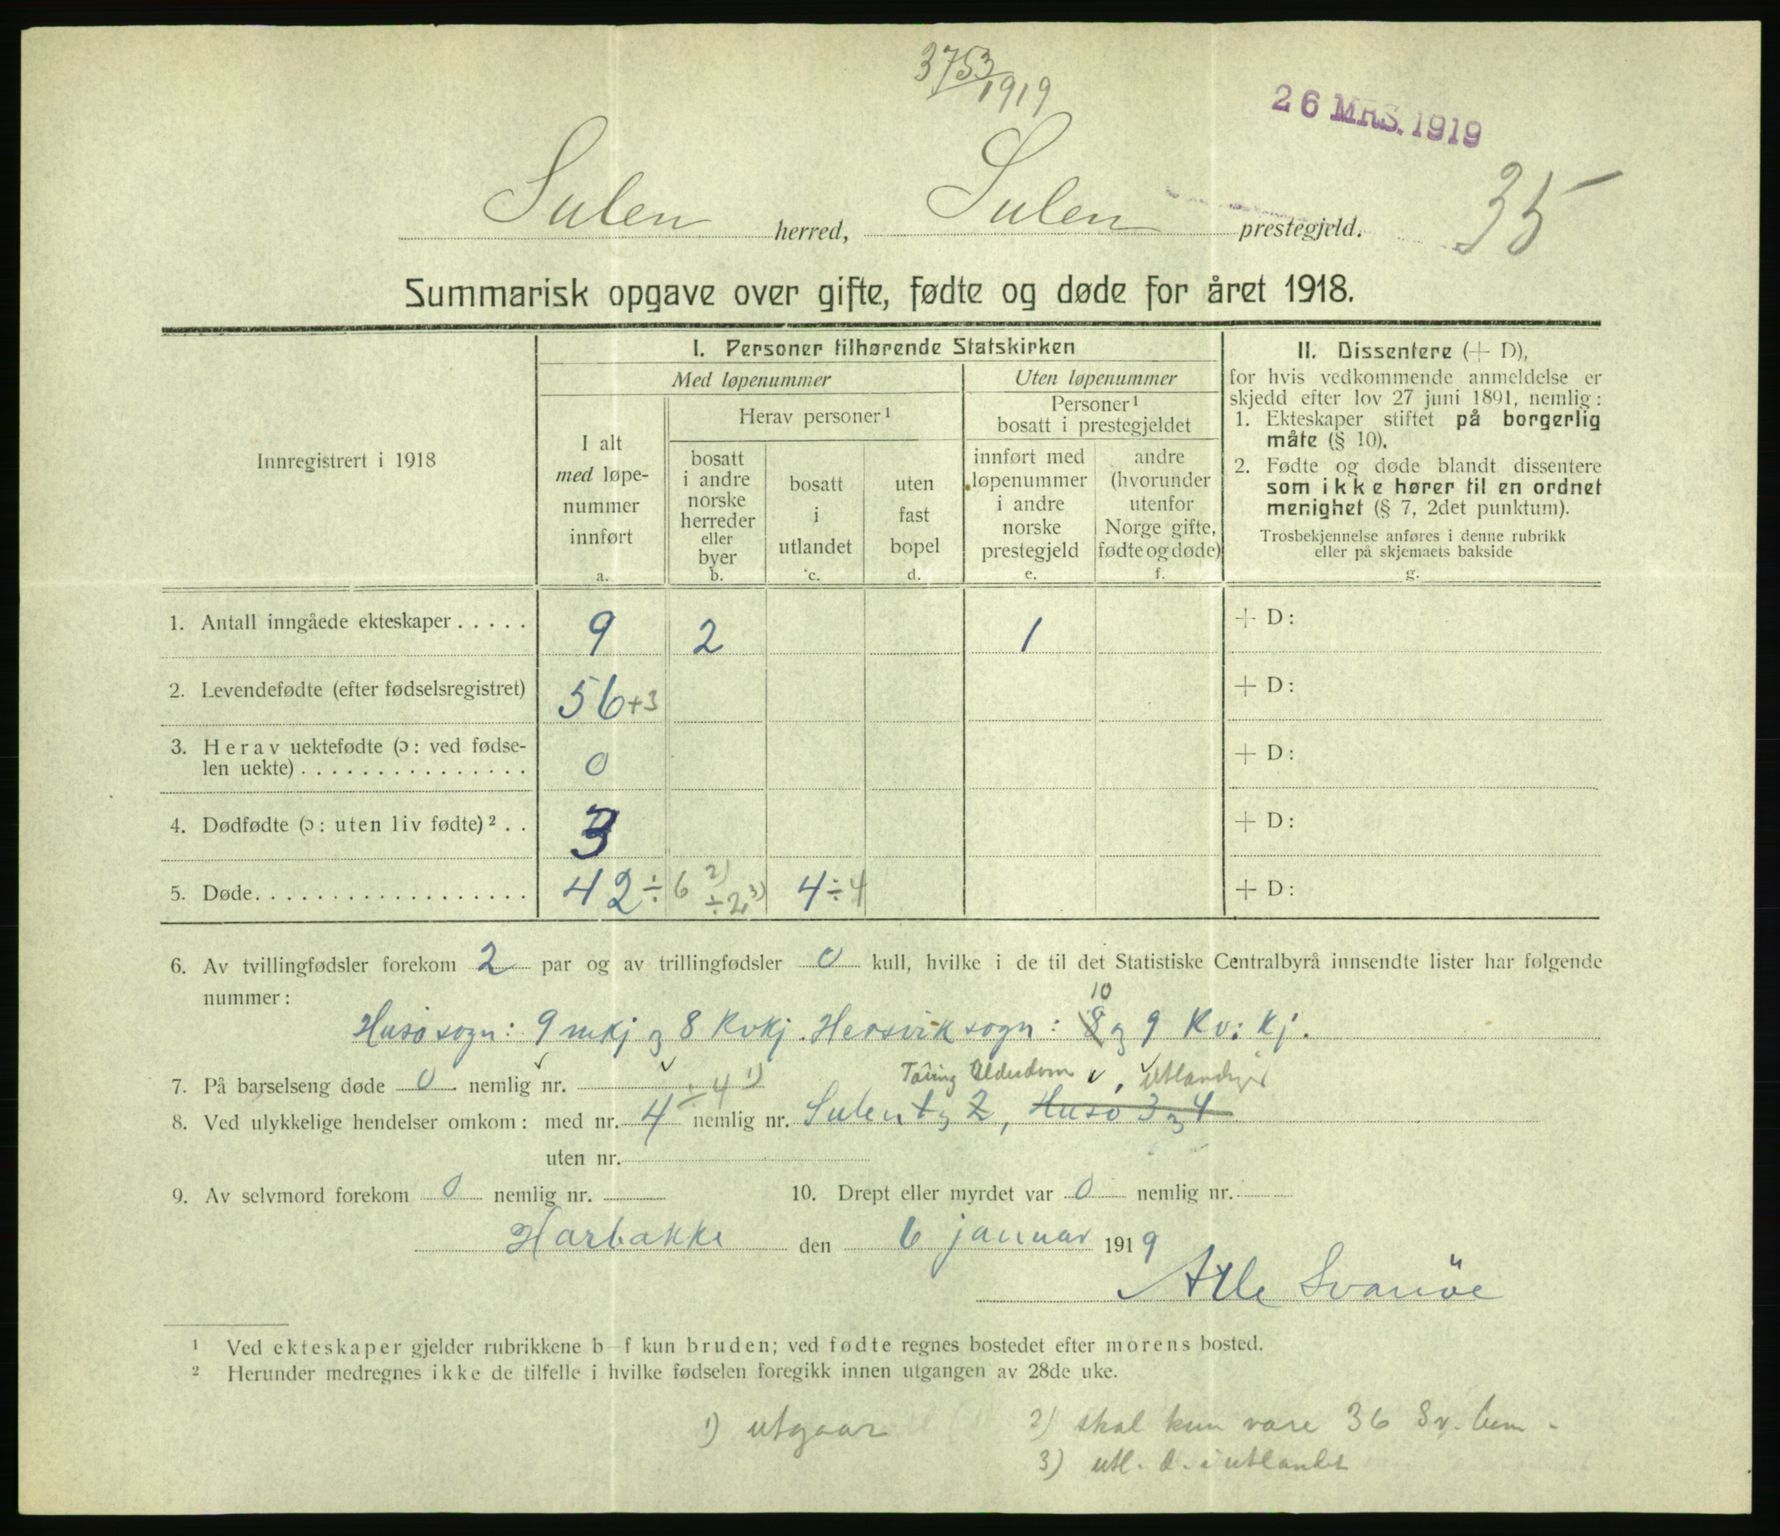 3753/1919
26 MRS. 1919
35
Sulen herred, Sulen prestegjeld.
Summarisk opgave over gifte, fødte og døde for året 1918.
Innregistrert i 1918
I. Personer tilhørende Statskirken
Med løpenummer
Uten løpenummer
I alt med løpe-nummer innført a.
Herav personer ¹
bosatt i andre norske herreder eller byer b.
bosatt i utlandet c.
uten fast bopel d.
Personer ¹ bosatt i prestegjeldet
innført med løpenummer i andre norske prestegjeld e.
andre (hvorunder utenfor Norge gifte, fødte og døde) f.
II. Dissentere (+ D),
for hvis vedkommende anmeldelse er
skjedd efter lov 27 juni 1891, nemlig:
1. Ekteskaper stiftet på borgerlig
måte (§ 10).
2. Fødte og døde blandt dissentere
som ikke hører til en ordnet
menighet (§ 7, 2det punktum).
Trosbekjennelse anføres i denne rubrikk
eller på skjemaets bakside
g.
1. Antall inngåede ekteskaper . . . . . 9 2 1 + D:
2. Levendefødte (efter fødselsregistret) 56 +3 + D:
3. Herav uektefødte (ɔ: ved fødse-
len uekte) . . . . . . . . . . . . . . . 0 + D:
4. Dødfødte (ɔ: uten liv fødte) ² . . 3 + D:
5. Døde. . . . . . . . . . . . . . . . . . 42 ÷ 6 2) ÷ 2 3) 4 ÷ 4 + D:
6. Av tvillingfødsler forekom 2 par og av trillingfødsler 0 kull, hvilke i de til det Statistiske Centralbyrå innsendte lister har følgende
nummer:
10
Husø sogn: 9 mkj og 8 Kvkj. Hersvik sogn: 8 og 9 Kv: kj.
7. På barselseng døde 0 nemlig nr.
÷ 4 1) Tæring Alderdom , Utlandige
8. Ved ulykkelige hendelser omkom: med nr. 4 nemlig nr. Sulen 1 og 2, Husø 3 og 4
uten nr.
9. Av selvmord forekom 0 nemlig nr. 10. Drept eller myrdet var 0 nemlig nr.
Harbakke den 6 januar 1919
Atle Svanöe
¹ Ved ekteskaper gjelder rubrikkene b–f kun bruden; ved fødte regnes bostedet efter morens bosted.
² Herunder medregnes ikke de tilfelle i hvilke fødselen foregikk innen utgangen av 28de uke.
1) utgaar
2) skal kun være 36
3) utl. d. i utlandet